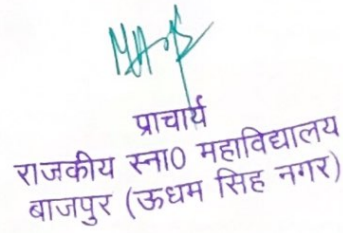 प्राचार्य
राजकीय स्ना0 महाविद्यालय
बाजपुर (ऊधम सिह नगर)